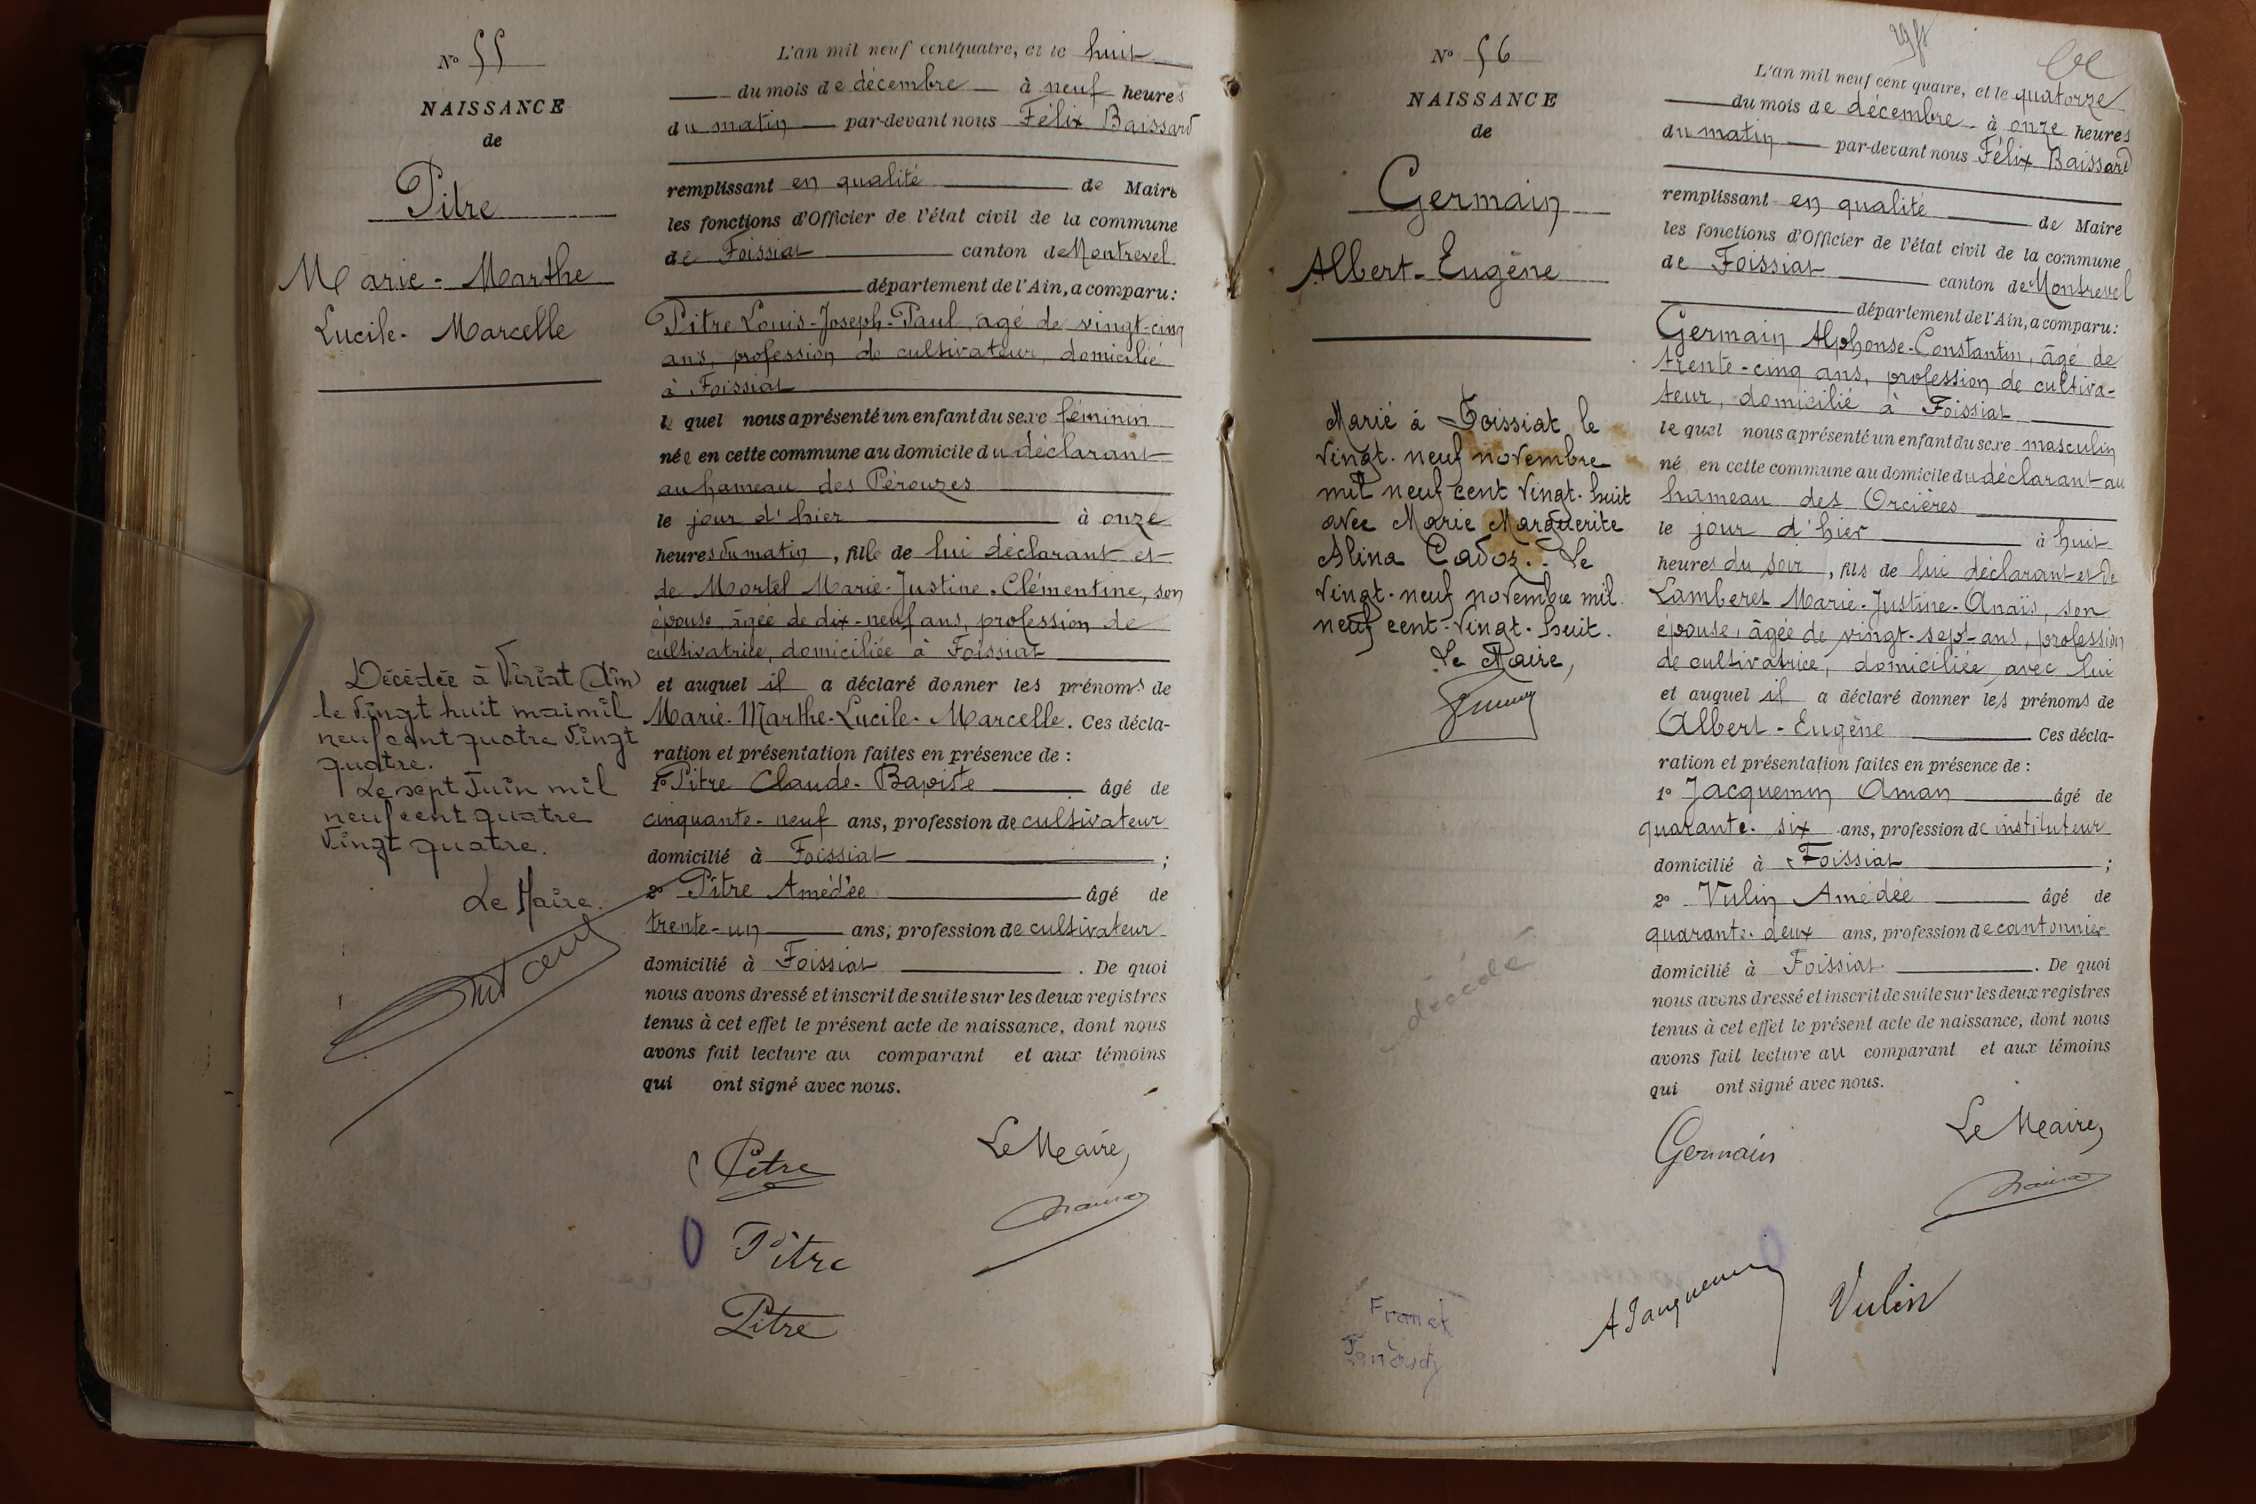 N° 55
NAISSANCE
de
Pitre
Marie-Marthe
Lucile-Marcelle
Décédée à Viriat (Ain)
le vingt huit mai mil
neuf cent quatre vingt
quatre.
Le sept Juin mil
neuf cent quatre
vingt quatre.
Le Maire.
L'an mil neuf cent quatre, et le huit
du mois de décembre à neuf heures
du matin par-devant nous Félix Baissard
remplissant en qualité de Maire
les fonctions d'Officier de l'état civil de la commune
de Foissiat canton de Montrevel
département de l'Ain, a comparu :
Pitre Louis-Joseph-Paul, âgé de vingt-cinq
ans, profession de cultivateur, domicilié
à Foissiat
le quel nous a présenté un enfant du sexe féminin
née en cette commune au domicile du déclarant
au hameau des Pérouzes
le jour d'hier à onze
heures du matin, fille de lui déclarant et
de Mortel Marie-Justine-Clémentine, son
épouse, âgée de dix-neuf ans, profession de
cultivatrice, domiciliée à Foissiat
et auquel il a déclaré donner les prénoms de
Marie-Marthe-Lucile-Marcelle. Ces décla-
ration et présentation faites en présence de :
1° Pitre Claude-Baptiste âgé de
cinquante-neuf ans, profession de cultivateur
domicilié à Foissiat ;
2° Pitre Amédée âgé de
trente-un ans, profession de cultivateur
domicilié à Foissiat . De quoi
nous avons dressé et inscrit de suite sur les deux registres
tenus à cet effet le présent acte de naissance, dont nous
avons fait lecture au comparant et aux témoins
qui ont signé avec nous.
Le Maire,
Pitre
Pitre
Pitre
N° 56
NAISSANCE
de
Germain
Albert-Eugène
Marié à Foissiat le
vingt-neuf novembre
mil neuf cent vingt-huit
avec Marie Marguerite
Alina Cadoz. Le
vingt-neuf novembre mil
neuf cent-vingt-huit.
Le Maire,
décédé
Franck
L'an mil neuf cent quatre, et le quatorze
du mois de décembre à onze heures
du matin par-devant nous Félix Baissard
remplissant en qualité de Maire
les fonctions d'Officier de l'état civil de la commune
de Foissiat canton de Montrevel
département de l'Ain, a comparu :
Germain Alphonse-Constantin, âgé de
trente-cinq ans, profession de cultiva-
teur, domicilié à Foissiat
le quel nous a présenté un enfant du sexe masculin
né en cette commune au domicile du déclarant au
hameau des Orcières
le jour d'hier à huit
heures du soir, fils de lui déclarant et de
Lamberet Marie-Justine-Anaïs, son
épouse, âgée de vingt-sept ans, profession
de cultivatrice, domiciliée avec lui
et auquel il a déclaré donner les prénoms de
Albert-Eugène Ces décla-
ration et présentation faites en présence de :
1° Jacquemin Aman âgé de
quarante-six ans, profession de instituteur
domicilié à Foissiat ;
2° Vulin Amédée âgé de
quarante-deux ans, profession de cantonnier
domicilié à Foissiat . De quoi
nous avons dressé et inscrit de suite sur les deux registres
tenus à cet effet le présent acte de naissance, dont nous
avons fait lecture au comparant et aux témoins
qui ont signé avec nous.
Germain
Le Maire,
A Jacquemin
Vulin